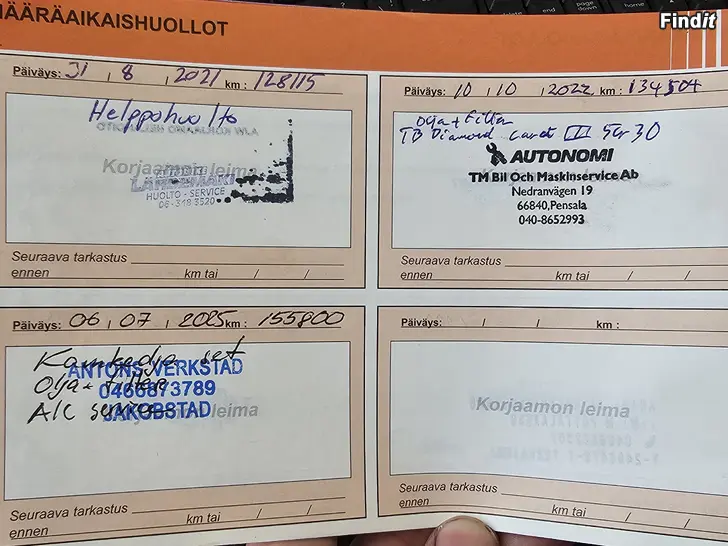 Findit
MÄÄRÄAIKAISHUOLLOT
Päiväys: 31 / 8 / 2021 km: 128115
Helppohuolto
Korjaamon leima
HUOLTO - SERVICE
06-318 3520
Seuraava tarkastus
ennen km tai / /
Päiväys: 10 / 10 / 2022 km: 134504
Olja + Filter
TB Diamond Carat III 5w30
AUTONOMI
TM Bil Och Maskinservice Ab
Nedranvägen 19
66840, Pensala
040-8652993
Seuraava tarkastus
ennen km tai / /
Päiväys: 06 / 07 / 2025 km: 155800
Kamkedja set
ANTONS VERKSTAD
Olja + filter
0466873789
A/C service
JAKOBSTAD
Korjaamon leima
Seuraava tarkastus
ennen km tai / /
Päiväys: / / km:
Korjaamon leima
Seuraava tarkastus
ennen km tai / /